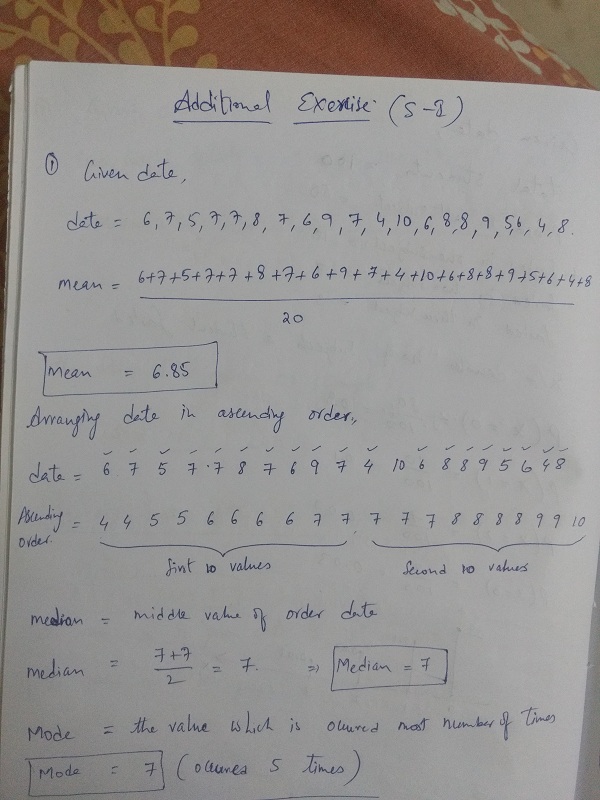 Additional Exercise (S-1)
① Given date,
date = 6, 7, 5, 7, 7, 8, 7, 6, 9, 7, 4, 10, 6, 8, 8, 9, 5, 6, 4, 8.
mean = 6+7+5+7+7+8+7+6+9+7+4+10+6+8+8+9+5+6+4+8
20
Mean = 6.85
Arranging date in ascending order,
date = 6 7 5 7 7 8 7 6 9 7 4 10 6 8 8 9 5 6 4 8
Ascending order. = 4 4 5 5 6 6 6 6 7 7 7 7 7 8 8 8 8 9 9 10
first 10 values Second 10 values
median = middle value of order date
median = 7+7/2 = 7. ⇒ Median = 7
Mode = the value which is occured most number of times
Mode = 7 (occures 5 times)